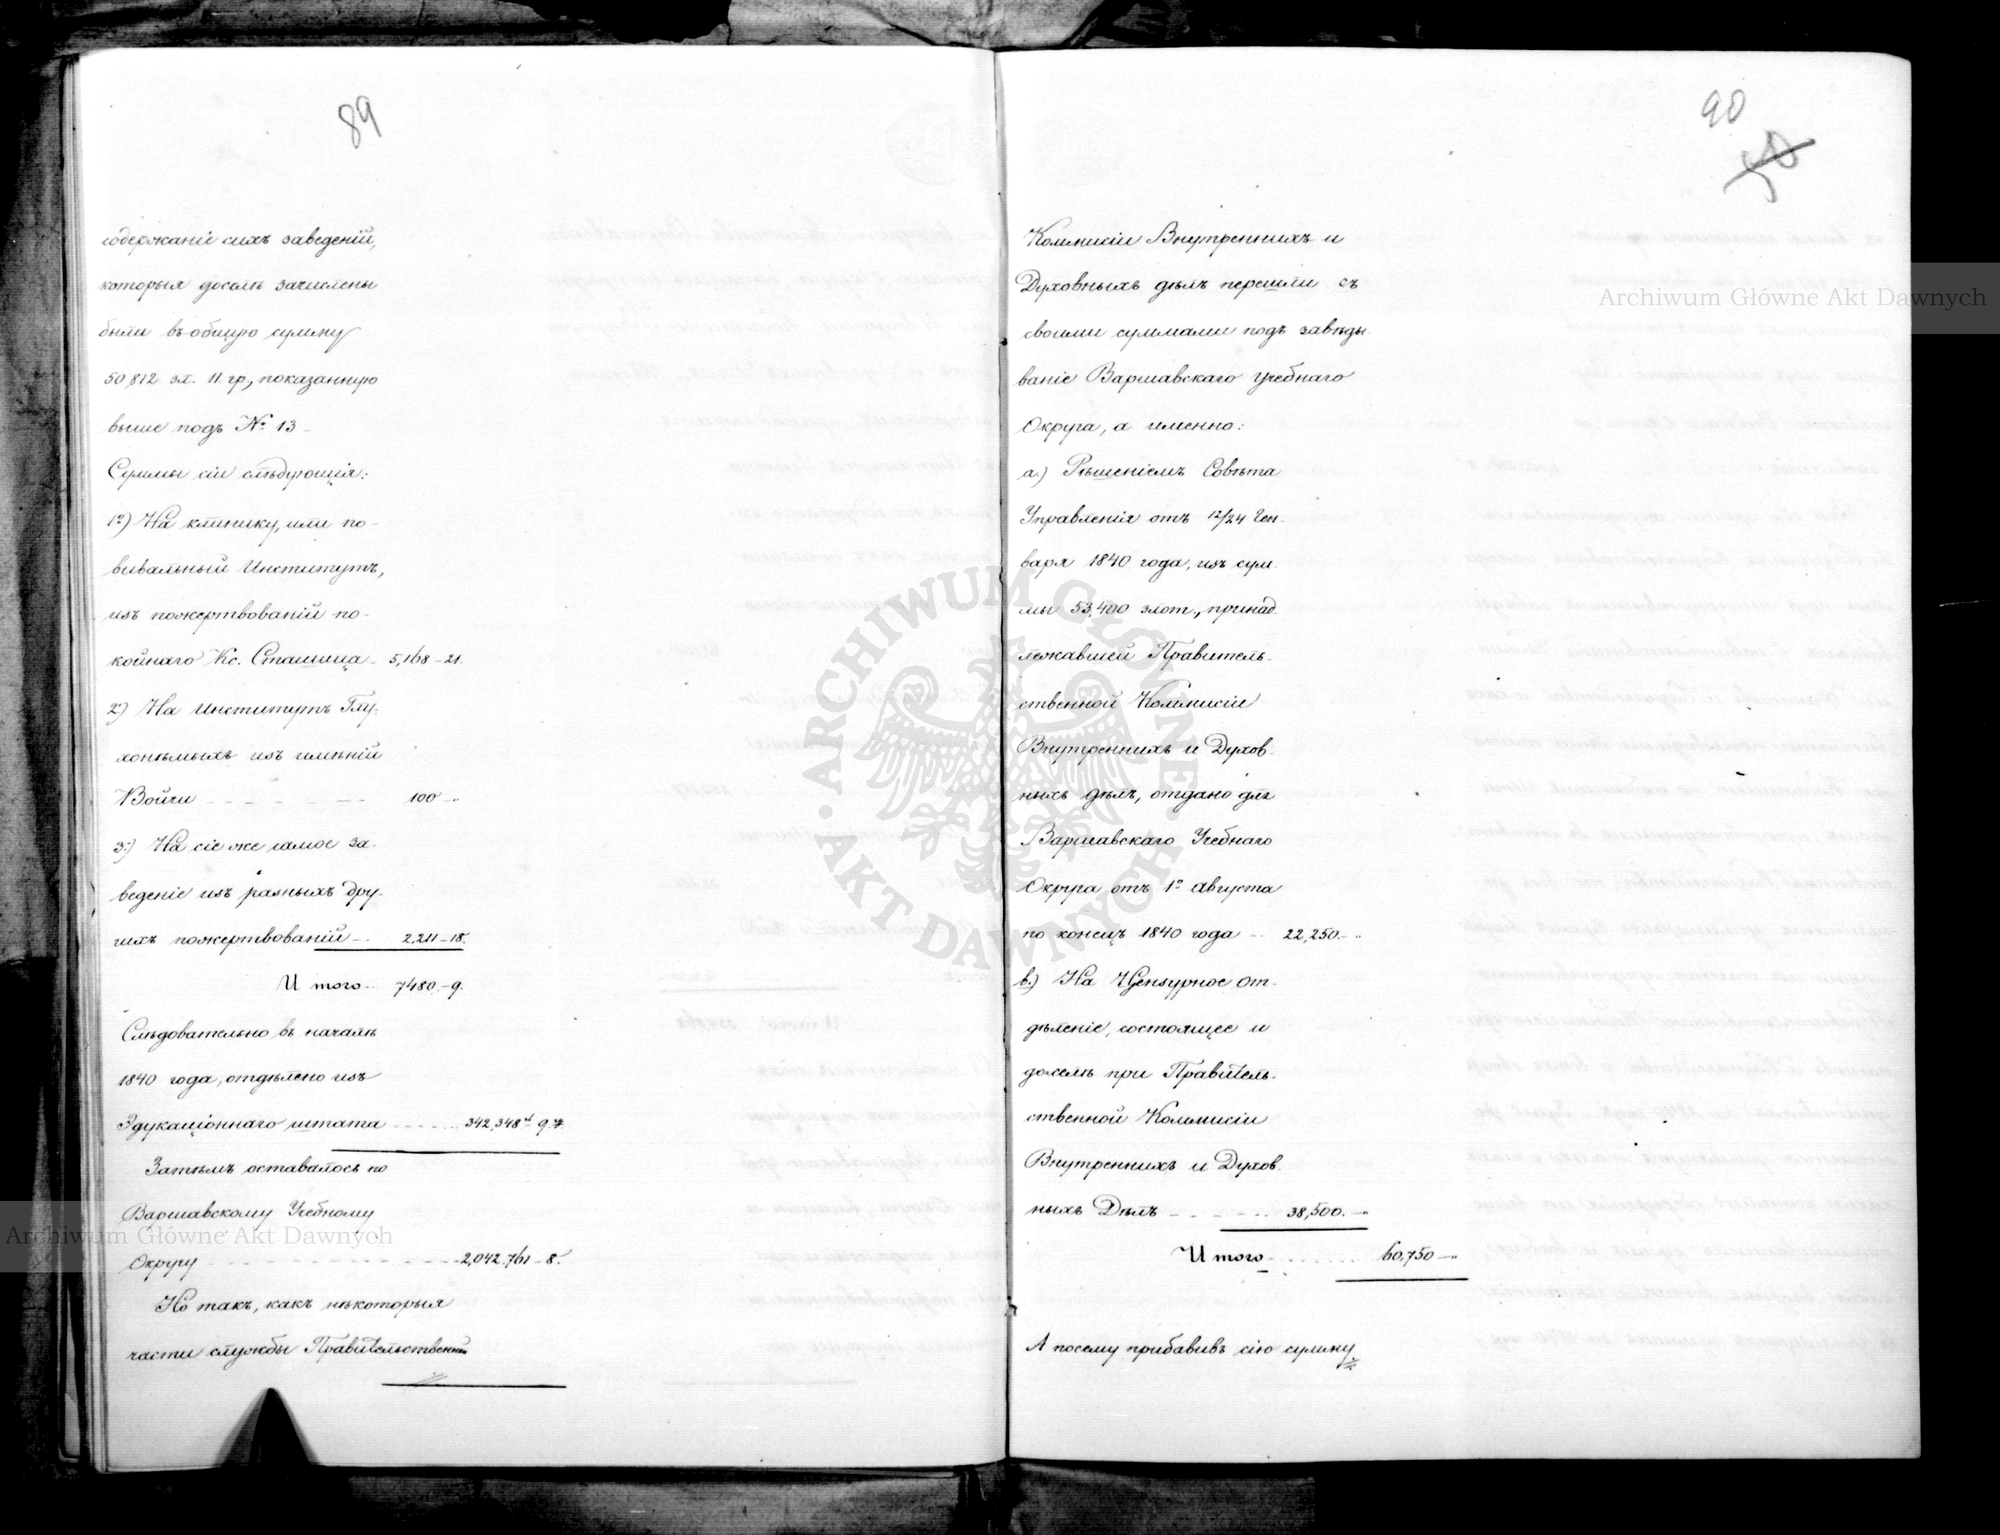 89
содержаніе сихъ заведеній,
которыя доселѣ зачислены
были въ общую сумму
50,812 зл. 11 гр., показанную
выше подъ № 13 –
Суммы сіи слѣдующія:
1º) На клинику, или по-
вивальный Институтъ,
изъ пожертвованій по-
койнаго Кс. Сташица – 5,168 – 21.
2º) На Институтъ Глу-
хонѣмыхъ изъ имѣній
Войчи – – – – – 100 – "
3º) На сіе же самое за-
веденіе изъ разныхъ дру-
гихъ пожертвованій – 2,211 – 18.
И того – 7480. – 9.
Слѣдовательно въ началѣ
1840 года, отдѣлено изъ
Эдукаціоннаго штата – – – 342,348 9
Затѣмъ оставалось по
Варшавскому Учебному
Округу – – – – – 2,042,761 – 8.
Но такъ, какъ нѣкоторыя
части службы Правительственной
90
Коммисіи Внутреннихъ и
Духовныхъ дѣлъ перешли съ
своими суммами подъ завѣды-
ваніе Варшавскаго Учебнаго
Округа, а именно:
а.) Рѣшеніемъ Совѣта
Управленія отъ 12/24 Ген-
варя 1840 года, изъ сум-
мы 53,400 злот., принад-
лежавшей Правитель-
ственной Коммисіи
Внутреннихъ и Духов-
ныхъ дѣлъ, отдано для
Варшавскаго Учебнаго
Округа отъ 1º Августа
по конецъ 1840 года – 22,250. – "
в.) На Ценсурное от-
дѣленіе, состоящее и
доселѣ при Правитель-
ственной Коммисіи
Внутреннихъ и Духов-
ныхъ Дѣлъ – – – – 38,500. – "
И того – – – 60,750 – "
А посему прибавивъ сію сумму
Archiwum Główne Akt Dawnych
Archiwum Główne Akt Dawnych
ARCHIWUM GŁÓWNE · AKT DAWNYCH ·